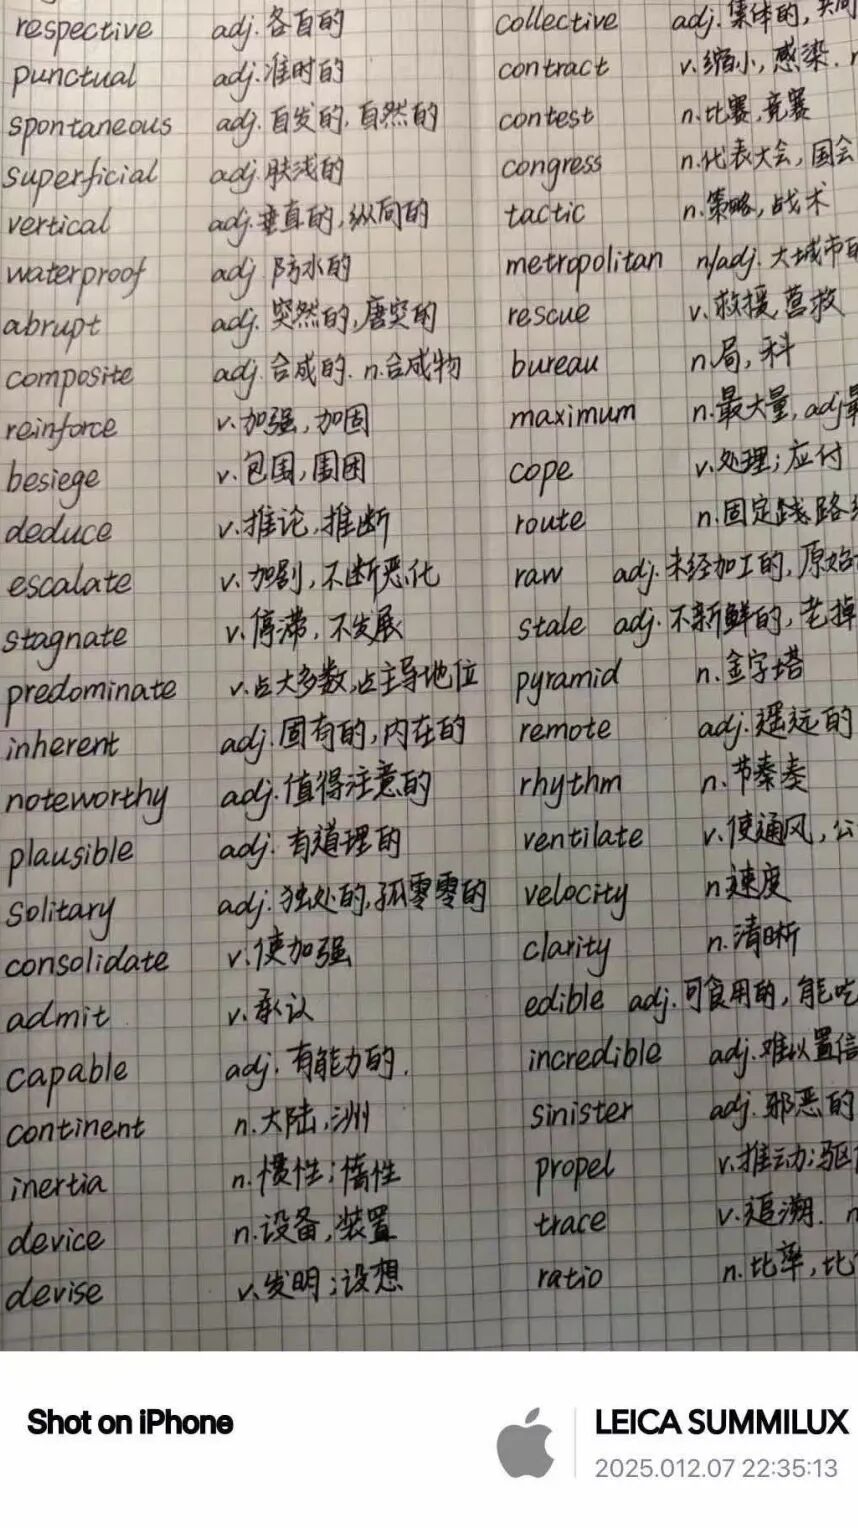 respective adj.各自的 collective adj.集体的,共同
punctual adj.准时的 contract v.缩小,感染.
spontaneous adj.自发的.自然的 contest n.比赛,竞赛
superficial adj.肤浅的 congress n.代表大会,国会
vertical adj.垂直的,纵向的 tactic n.策略,战术
waterproof adj.防水的 metropolitan n/adj.大城市的
abrupt adj.突然的,唐突的 rescue v.救援,营救
composite adj.合成的.n.合成物 bureau n.局,科
reinforce v.加强,加固 maximum n.最大量,adj最
besiege v.包围,围困 cope v.处理;应付
deduce v.推论,推断 route n.固定线路
escalate v.加剧,不断恶化 raw adj.未经加工的,原始
stagnate v.停滞,不发展 stale adj.不新鲜的,老掉
predominate v.占大多数,占主导地位 pyramid n.金字塔
inherent adj.固有的,内在的 remote adj.遥远的
noteworthy adj.值得注意的 rhythm n.节奏
plausible adj.有道理的 ventilate v.使通风,公
solitary adj.独处的,孤零零的 velocity n速度
consolidate v.使加强 clarity n.清晰
admit v.承认 edible adj.可食用的,能吃
capable adj.有能力的. incredible adj.难以置信
continent n.大陆,洲 sinister adj.邪恶的
inertia n.惯性;惰性 propel v.推动;驱
device n.设备,装置 trace v.追溯. n
devise v.发明;设想 ratio n.比率,比
Shot on iPhone
LEICA SUMMILUX
2025.012.07 22:35:13